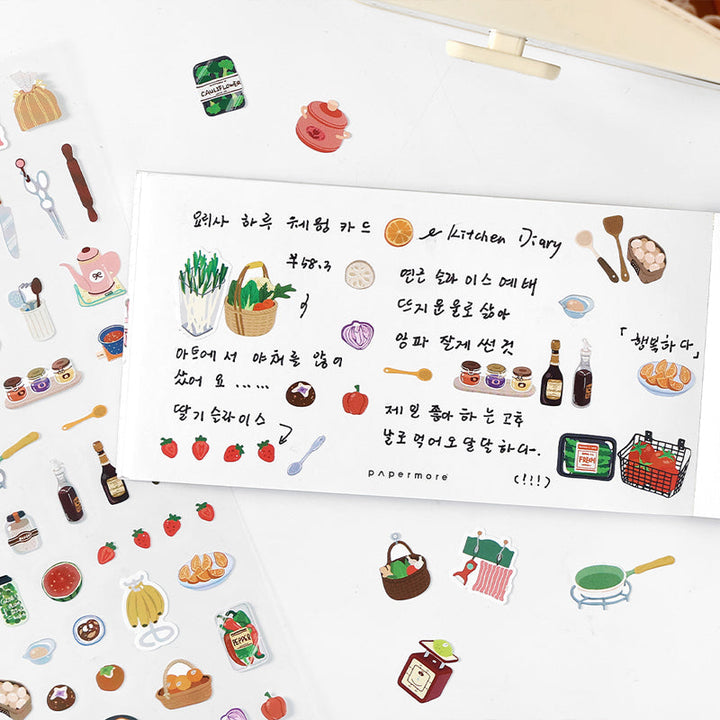 CAULIFLOWER
요리사 하루 웨펑 카드
& Kitchen Diary
부58.3
연근 슬라이스 예배
뜨지운 물로 삶아
양파 잘게 썬 것
「행복하다」
마트에서 야채를 많이
샀어요......
딸기 슬라이스
제일 좋아하는 고추
날로 먹어오 달달하다.
(!!!)
FRESH
papermore
PEPPER